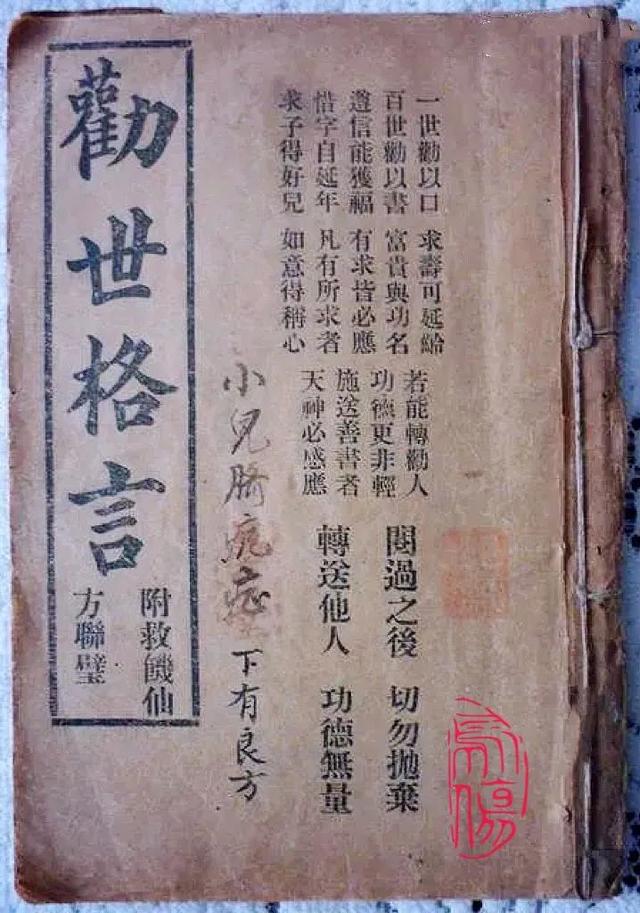 一世勸以口
百世勸以書
遵信能獲福
惜字自延年
求子得好兒
求壽可延齡
富貴與功名
有求皆必應
凡有所求者
如意得稱心
若能轉勸人
功德更非輕
施送善書者
天神必感應
閱過之後 切勿拋棄
轉送他人 功德無量
小兒臍症下有良方
勸世格言
附救饑仙
方聯璧